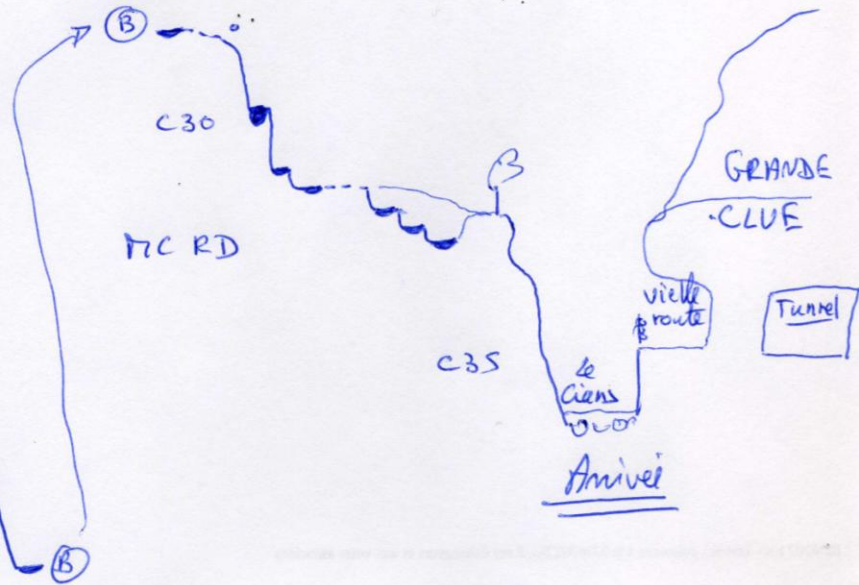 B
C30
B
GRANDE
CLUE
MC RD
vielle
route
Tunnel
C35
le
Cians
Arrivée
B